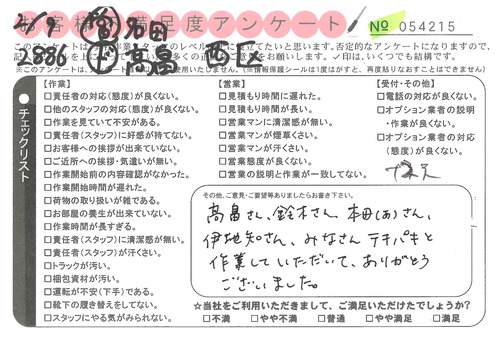 お客様満足度アンケート
№ 054215
2886
髙畠
西区
※このアンケートは
使用いたしません。(※情報保護シールは1度はがすと、再度貼りなおすことはできません)
チェックリスト
【作業】
□責任者の対応(態度)が良くない。
□他のスタッフの対応(態度)が良くない。
□作業を見ていて不安がある。
□責任者(スタッフ)に好感が持てない。
□お客様への挨拶が出来ていない。
□ご近所への挨拶・気遣いが無い。
□作業開始前の内容確認がなかった。
□作業開始時間が遅れた。
□荷物の取り扱いが雑である。
□お部屋の養生が出来ていない。
□作業時間が長すぎる。
□責任者(スタッフ)に清潔感が無い。
□責任者(スタッフ)が汗くさい。
□トラックが汚い。
□梱包資材が汚い。
□運転が不安(下手)である。
□靴下の履き替えをしてない。
□スタッフにやる気がみられない。
【営業】
□見積もり時間に遅れた。
□見積もり時間が長い。
□営業マンに清潔感が無い。
□営業マンが煙草くさい。
□営業マンが汗くさい。
□営業態度が良くない。
□営業の説明と作業が一致してない。
【受付・その他】
□電話の対応が良くない。
□オプション業者の説明
・作業が良くない。
□オプション業者の対応
(態度)が良くない。
その他、ご意見・ご要望等ありましたらお書き下さい。
髙畠さん、鈴木さん、本田(あ)さん、
伊地知さん、みなさんテキパキと
作業していただいて、ありがとう
ございました。
☆当社をご利用いただきまして、ご満足いただけたでしょうか?
□不満 □やや不満 □普通 □やや満足 □満足